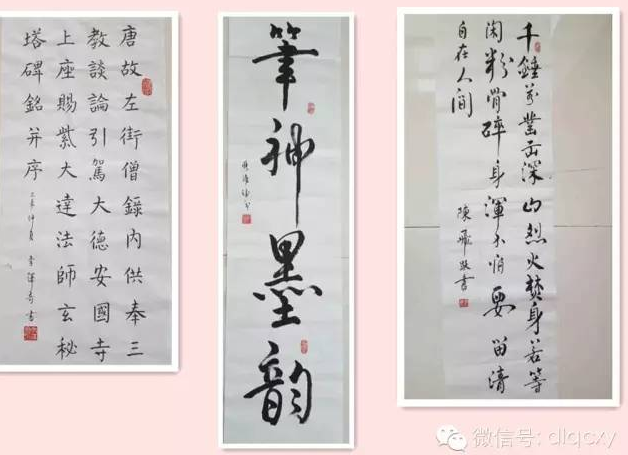 唐故左街僧錄內供奉三
教談論引駕大德安國寺
上座賜紫大達法師玄秘
塔碑銘并序
書
筆神墨韵
千錘萬凿出深山烈火焚身若等
闲粉骨碎身渾不怕要留清
白在人间
陳 書
微信号: dlqcxy